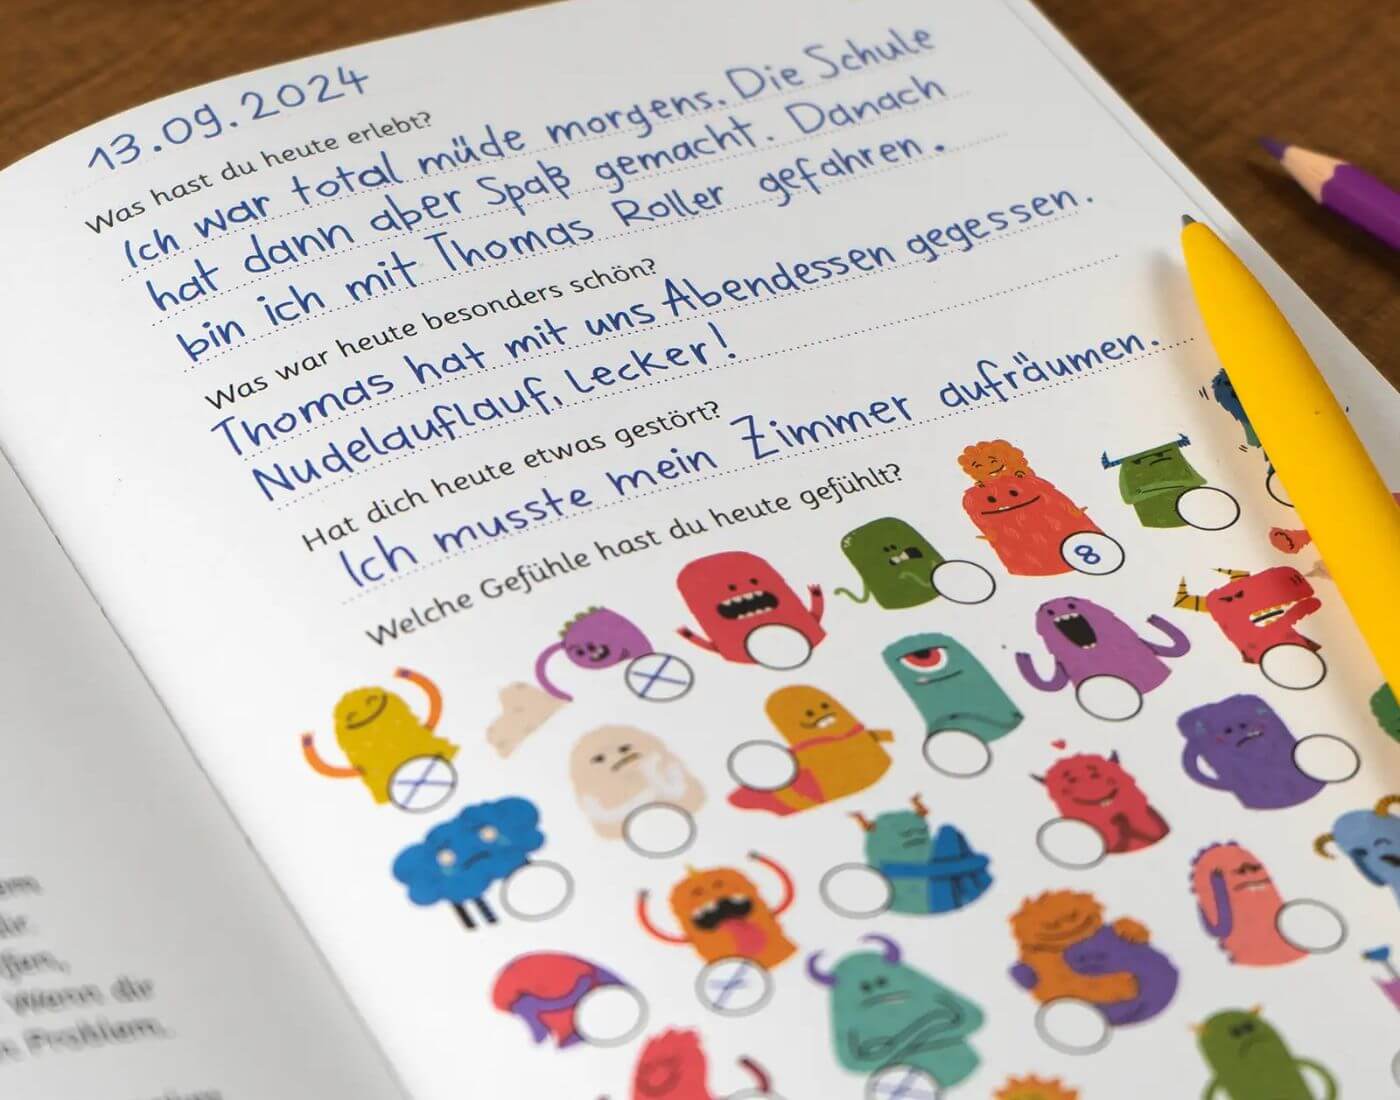 13.09.2024
Was hast du heute erlebt?
Ich war total müde morgens. Die Schule
hat dann aber Spaß gemacht. Danach
bin ich mit Thomas Roller gefahren.
Was war heute besonders schön?
Thomas hat mit uns Abendessen gegessen.
Nudelauflauf, Lecker!
Hat dich heute etwas gestört?
Ich musste mein Zimmer aufräumen.
Welche Gefühle hast du heute gefühlt?
8
Wenn dir
Problem.